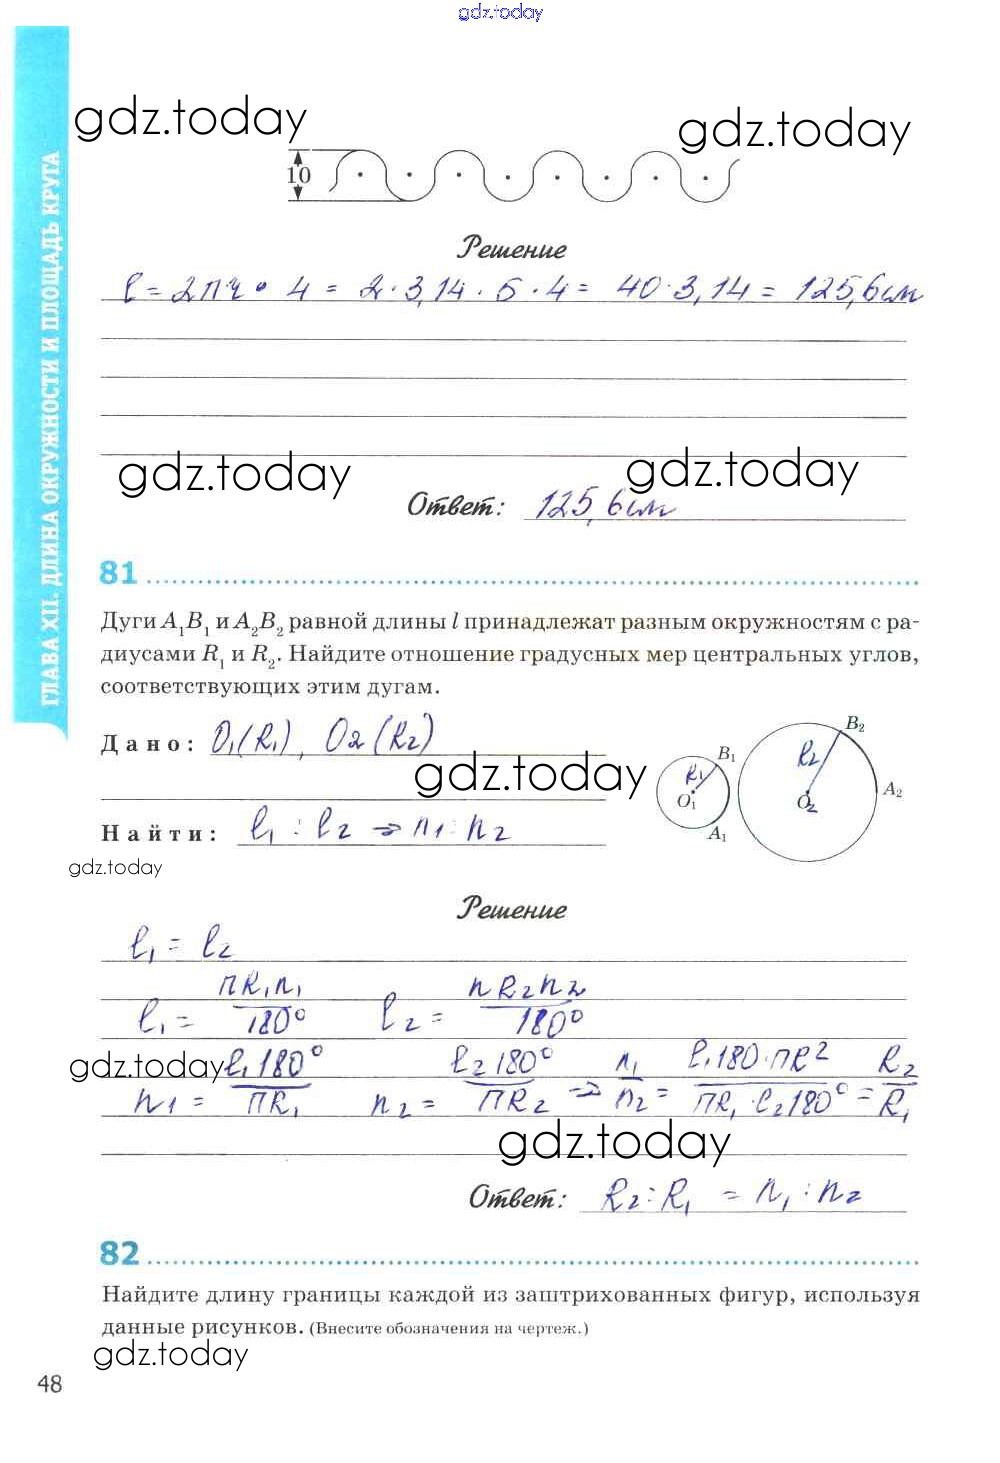 gdz.today
gdz.today
gdz.today
10
Решение
l = 2πr · 4 = 2 · 3,14 · 5 · 4 = 40 · 3,14 = 125,6 см
gdz.today
gdz.today
Ответ: 125,6 см
81
Дуги A₁B₁ и A₂B₂ равной длины l принадлежат разным окружностям с ра-
диусами R₁ и R₂. Найдите отношение градусных мер центральных углов,
соответствующих этим дугам.
Дано: O₁(R₁), O₂(R₂)
gdz.today
R₁ B₁ O₁ A₁
R₂ B₂ O₂ A₂
Найти: l₁ : l₂ ⇒ n₁ : n₂
gdz.today
Решение
l₁ = l₂
l₁ = πR₁n₁/180° l₂ = πR₂n₂/180°
gdz.today
n₁ = l₁180°/πR₁ n₂ = l₂180°/πR₂ ⇒ n₁/n₂ = l₁180·πR2/πR₁·l₂180° = R₂/R₁
gdz.today
Ответ: R₂ : R₁ = n₁ : n₂
82
Найдите длину границы каждой из заштрихованных фигур, используя
данные рисунков. (Внесите обозначения на чертеж.)
gdz.today
48
ГЛАВА XII. ДЛИНА ОКРУЖНОСТИ И ПЛОЩАДЬ КРУГА